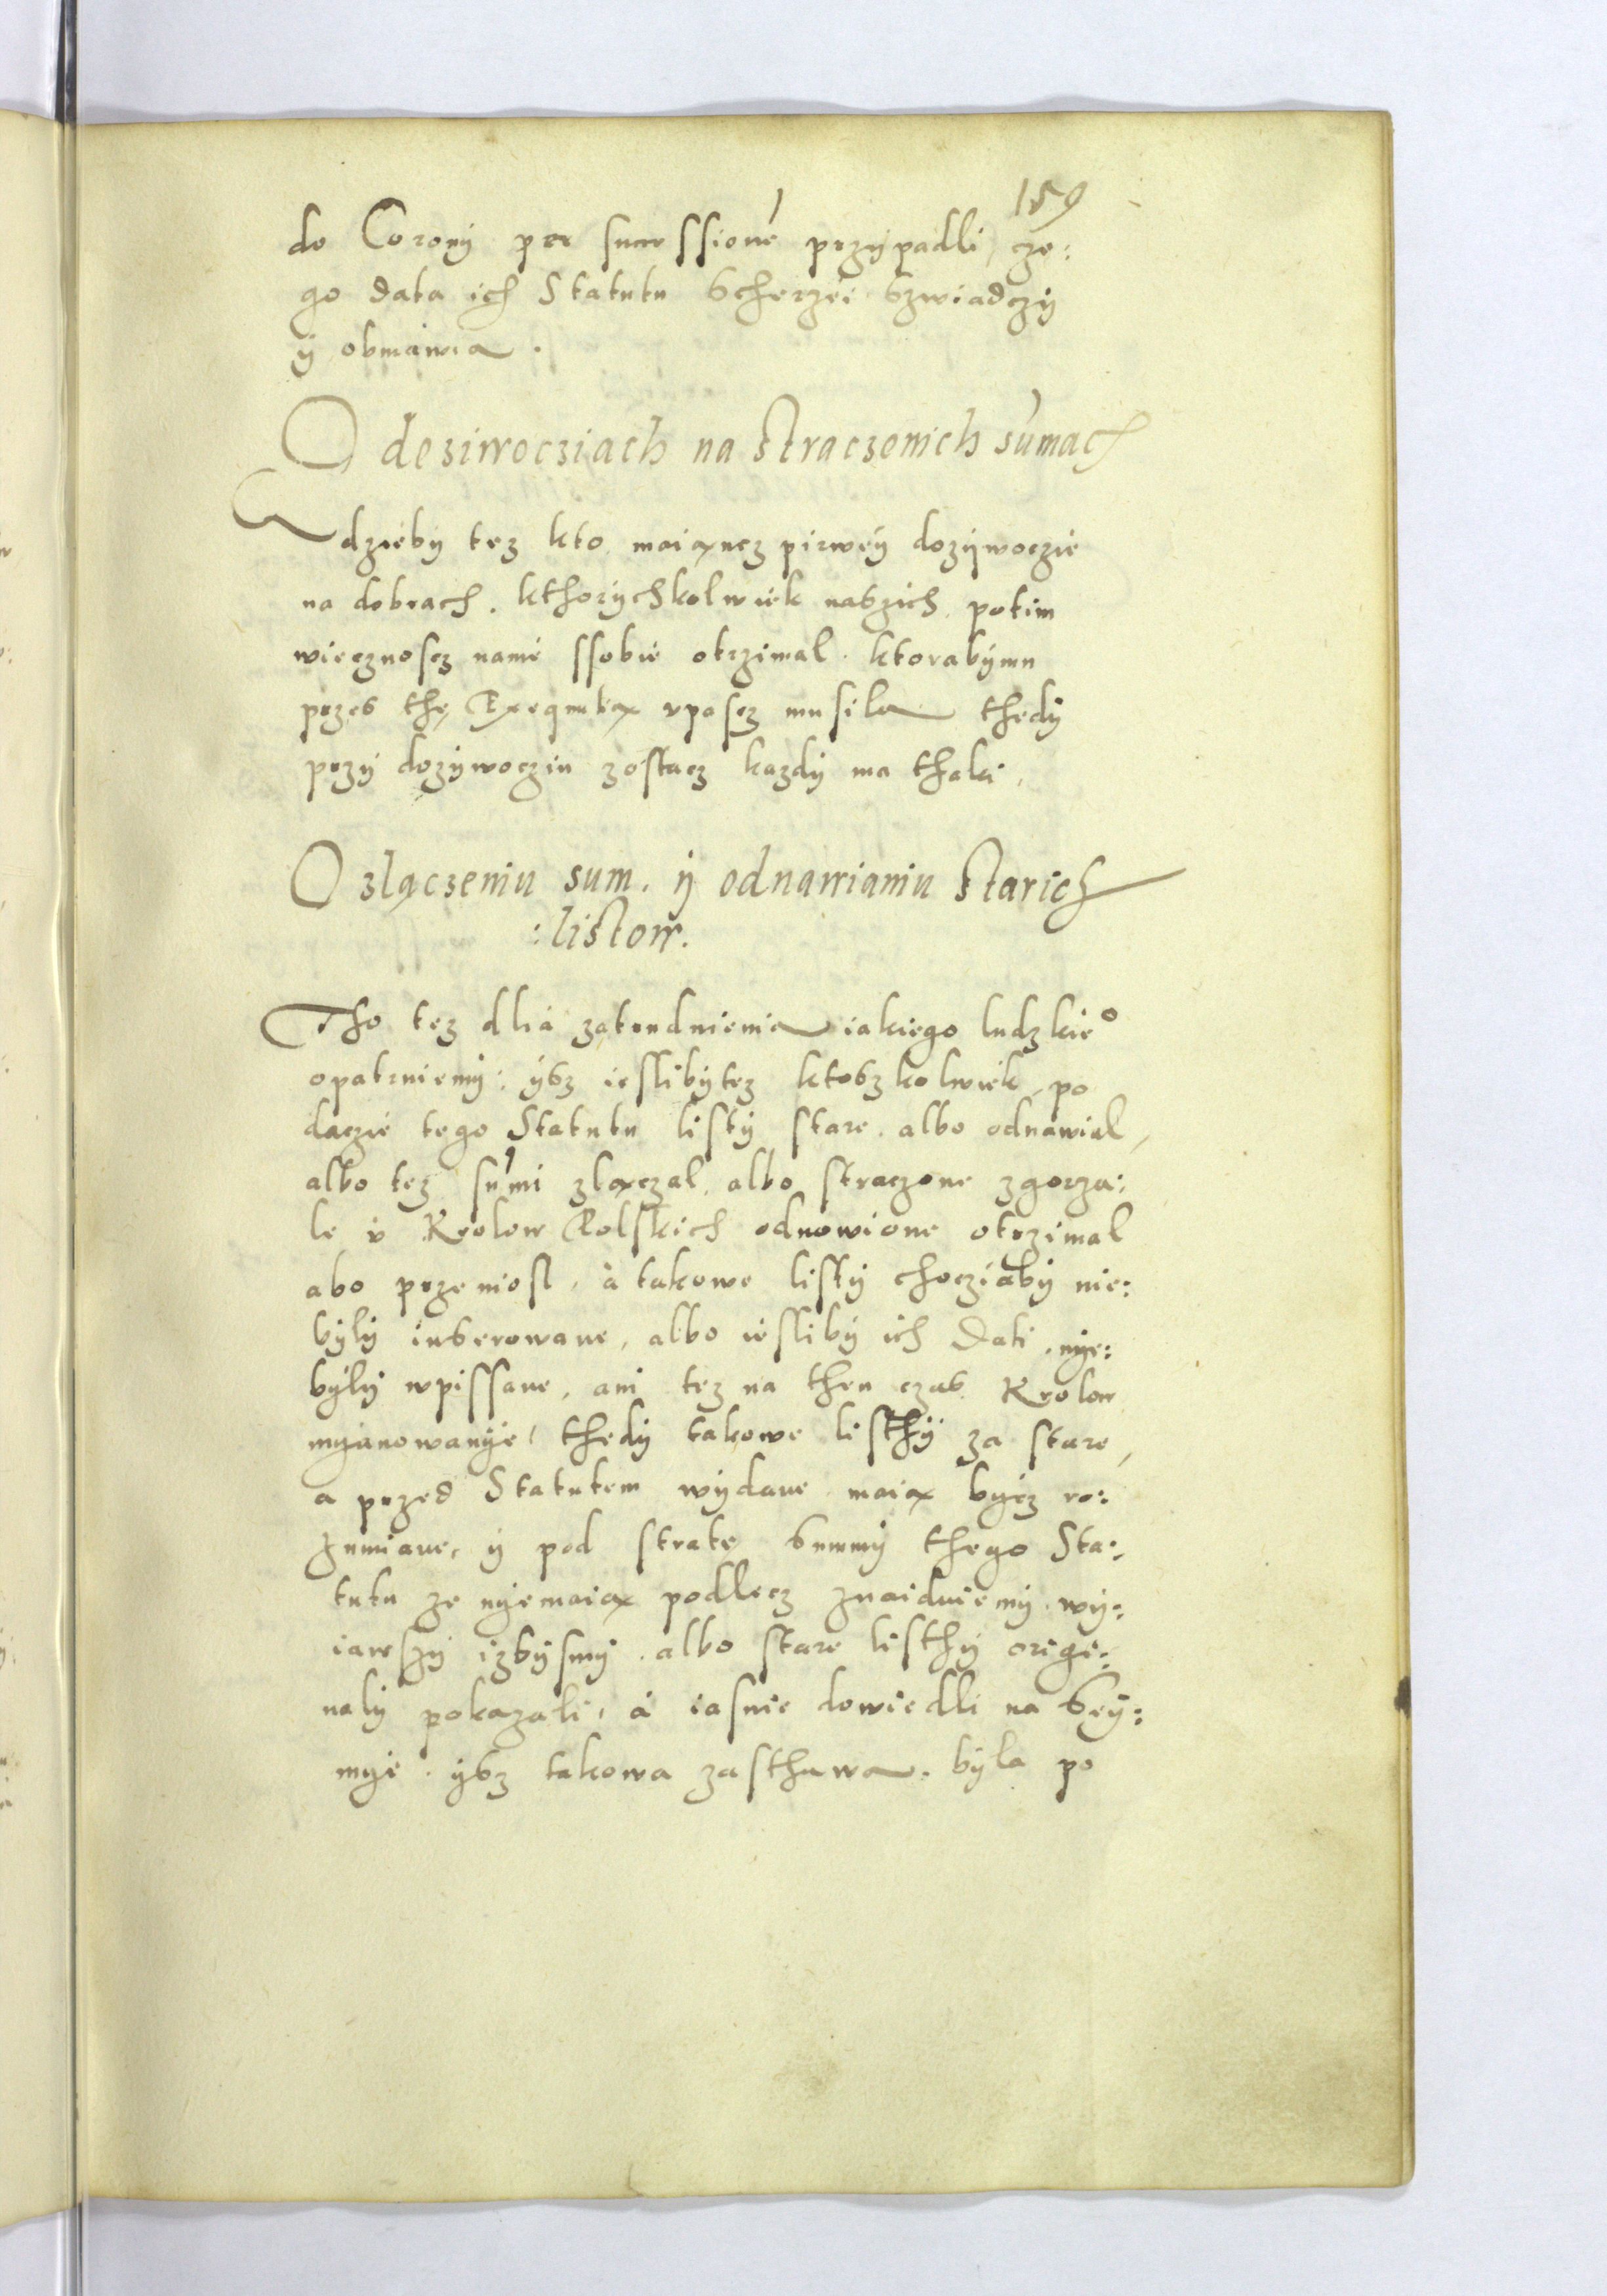 159
do Corony per successione przypadli, cze:
go data ich Statutu scherzei szwiadczy
ÿ obmawia.
O deziwocziach na straczonich sumach
Gdzieby tez kto maiąncz pirwey dozywoczie
na dobrach. kthorychkolwiek naszich potim
wiecznoscz namie ssobie otrzimal. ktorabymu
przes thę Exequutią upascz musila thedy
przy dozywocziu zostacz kazdy ma thaki
O złączeniu sum. ÿ odnawianiu starich
:listow.
Tho tez dlia zatrudnienia iakiego ludzkieo
opatrniemy: ysz ieslibytez ktoszkolwiek, po
daczie tego Statutu listy stare. albo odnawial,
albo tez sumi zlączal, albo straczone zgorza:
le v Krolow Polskich odnowione otrzimal
abo przeniosl, a takowe listy chocziaby nie:
byly inserowane, albo iesliby ich Dati, nye:
byly wpissane, ani tez na then czas Krolow
myanowanye, thedy takowe listhy za stare,
a przed Statutem wydane maią bycz ro:
zumiane, y pod strate summy thego Sta:
tutu ze nyemaią podlecz znaiduiemy. wy:
iawszy izbysmy. albo stare listhy origi:
naly pokazali, a iasnie dowiedli na sey:
mye. ysz takowa zasthawa. byla po